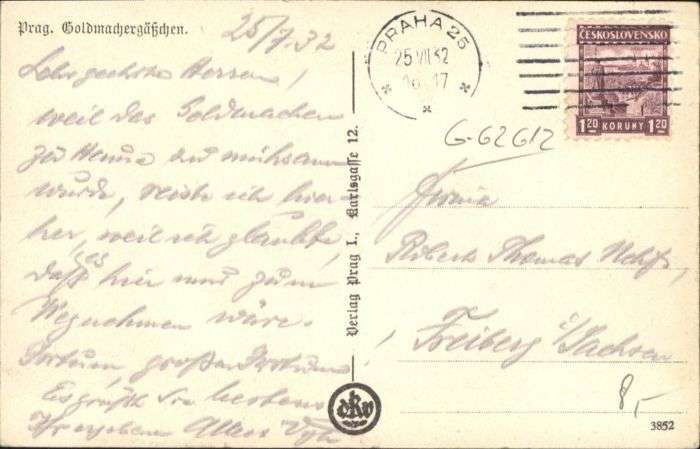 Prag. Goldmachergäßchen.
25/7.32
Sehr geehrte Herren,
weil das Goldmachen
zu Hause zu mühsam
wurde, reiste ich hier-
her, weil ich glaubte,
daß es hier nur zum
Wegnehmen wäre.
Irrtum, großer Irrtum
Es grüßt Sie bestens
Ihr ergebener
Verlag Prag I., Karlsgasse 12.
PRAHA 25
25 VII 32
16 17
ČESKOSLOVENSKO
1.20 KORUNY 1.20
G-62612
Firma
Robert Thomas Nchf,
Freiberg i/Sachsen
8,-
3852